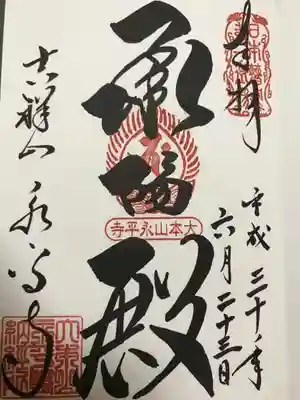 奉拝
平成三十年
六月二十三日
承陽殿
大本山永平寺
吉祥山 永平寺